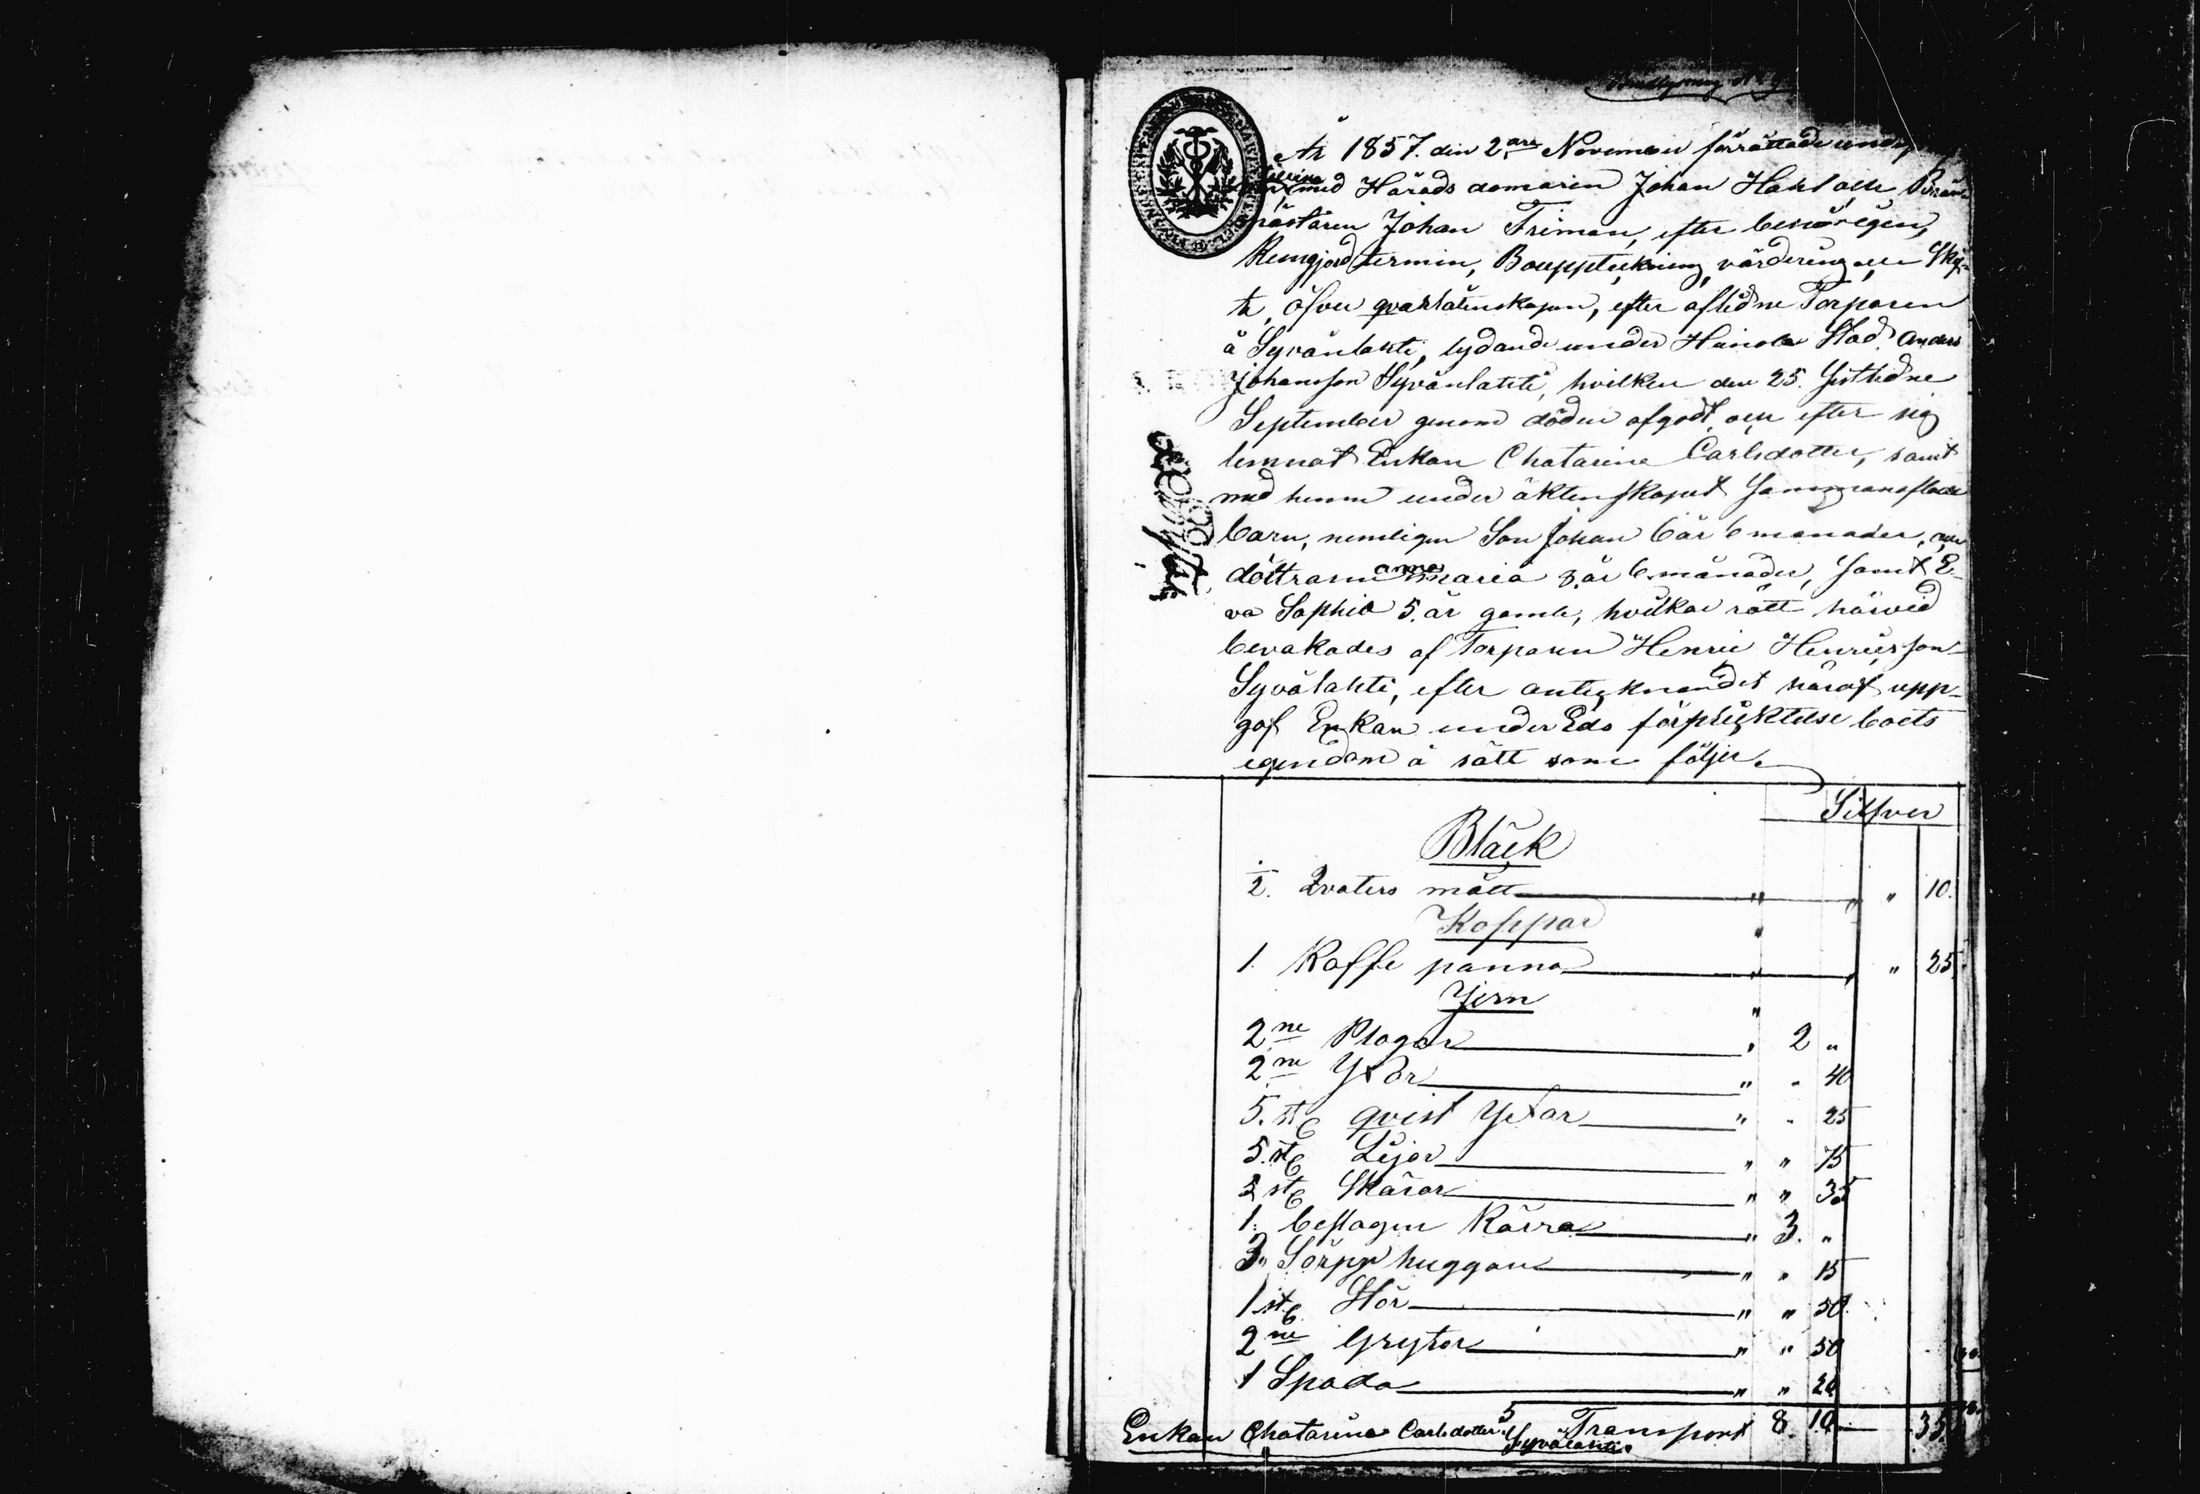 År 1857. den 2dra November förrättade
med Härads domaren Johan Hahl och
mästaren Johan Friman, efter behörigen
Kungjord termin, Bouppteckning, värdering och Skif-
te, öfver qvarlåtenskapen, efter aflidne Torparen
å Syvänlahti, lydande under Heinola Stad Anders
Johansson Syvänlahti, hvilken den 25. Sistledne
September genom döden afgått, och efter sig
lemnat Enkan Chatarina Carlsdotter, samt
med henne under äktenskapet Sammanaflade
barn, nemligen Son Johan 6 år 6 månader, och
döttrarne Anna Maria 3. år 6. månader, samt E-
va Sophia 5. år gamla, hvilkas rätt härvid
bevakades af Torparen Henric Henricsson
Syvälahti, efter antecknandet häraf upp-
gaf Enkan under Eds förpligtelse boets
egendom å sätt som följer.
Silfver
Bläck
1/2. Qvaters mått " " " 10.
Koppar "
1. Kaffe panna " " " 25.
Jern "
2ne Plogar " 2 "
2ne Yxor " " 40
5. st qvist Yxar " " 25
5. st Lijor " " 75
5 st Skäror " " 35
1. beslagen Kärra " 3. "
3. Sörpp huggare " " 15
1 st Hör " " 50
2ne Grytor " " 50
1 Spada " " 20
Transport 8. 10 35.
Enkan Chatarina Carlsdotter Syvälahti